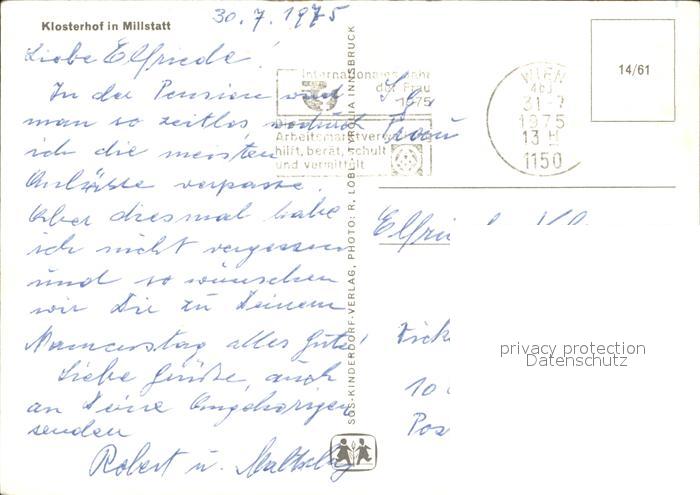 Klosterhof in Millstatt
30.7.1975
Liebe Elfriede!
In der Pension wird
man so zeitlos wodurch
ich die meisten
Anlässe verpasse.
Aber diesmal habe
ich nicht vergessen
und so wünschen
wir Dir zu Deinem
Namenstag alles Gute!
Liebe Grüße, auch
an Deine Angehörigen
senden
Robert u.
SOS-KINDERDORF-VERLAG, PHOTO: R. LÖBL, TYROLIA INNSBRUCK
Internationales Jahr
der Frau
1975
Arbeitsmarktverwaltung
hilft, berät, schult
und vermittelt
WIEN
31.-7
1975
13 H
1150
14/61
Frau
10
Pos
privacy protection
Datenschutz